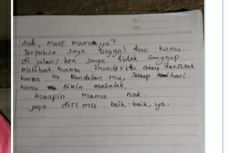 Nak, maaf mama ya?
Terpaksa saya tinggal kau kamu
di jalan, krn saya tidak sanggup
melihat kamu menderita atau tersiksa
karna ke Bandelan mu, setiap hari
kamu bikin masalah.
maafin mama nak.
jaga diri mu baik-baik, ya.